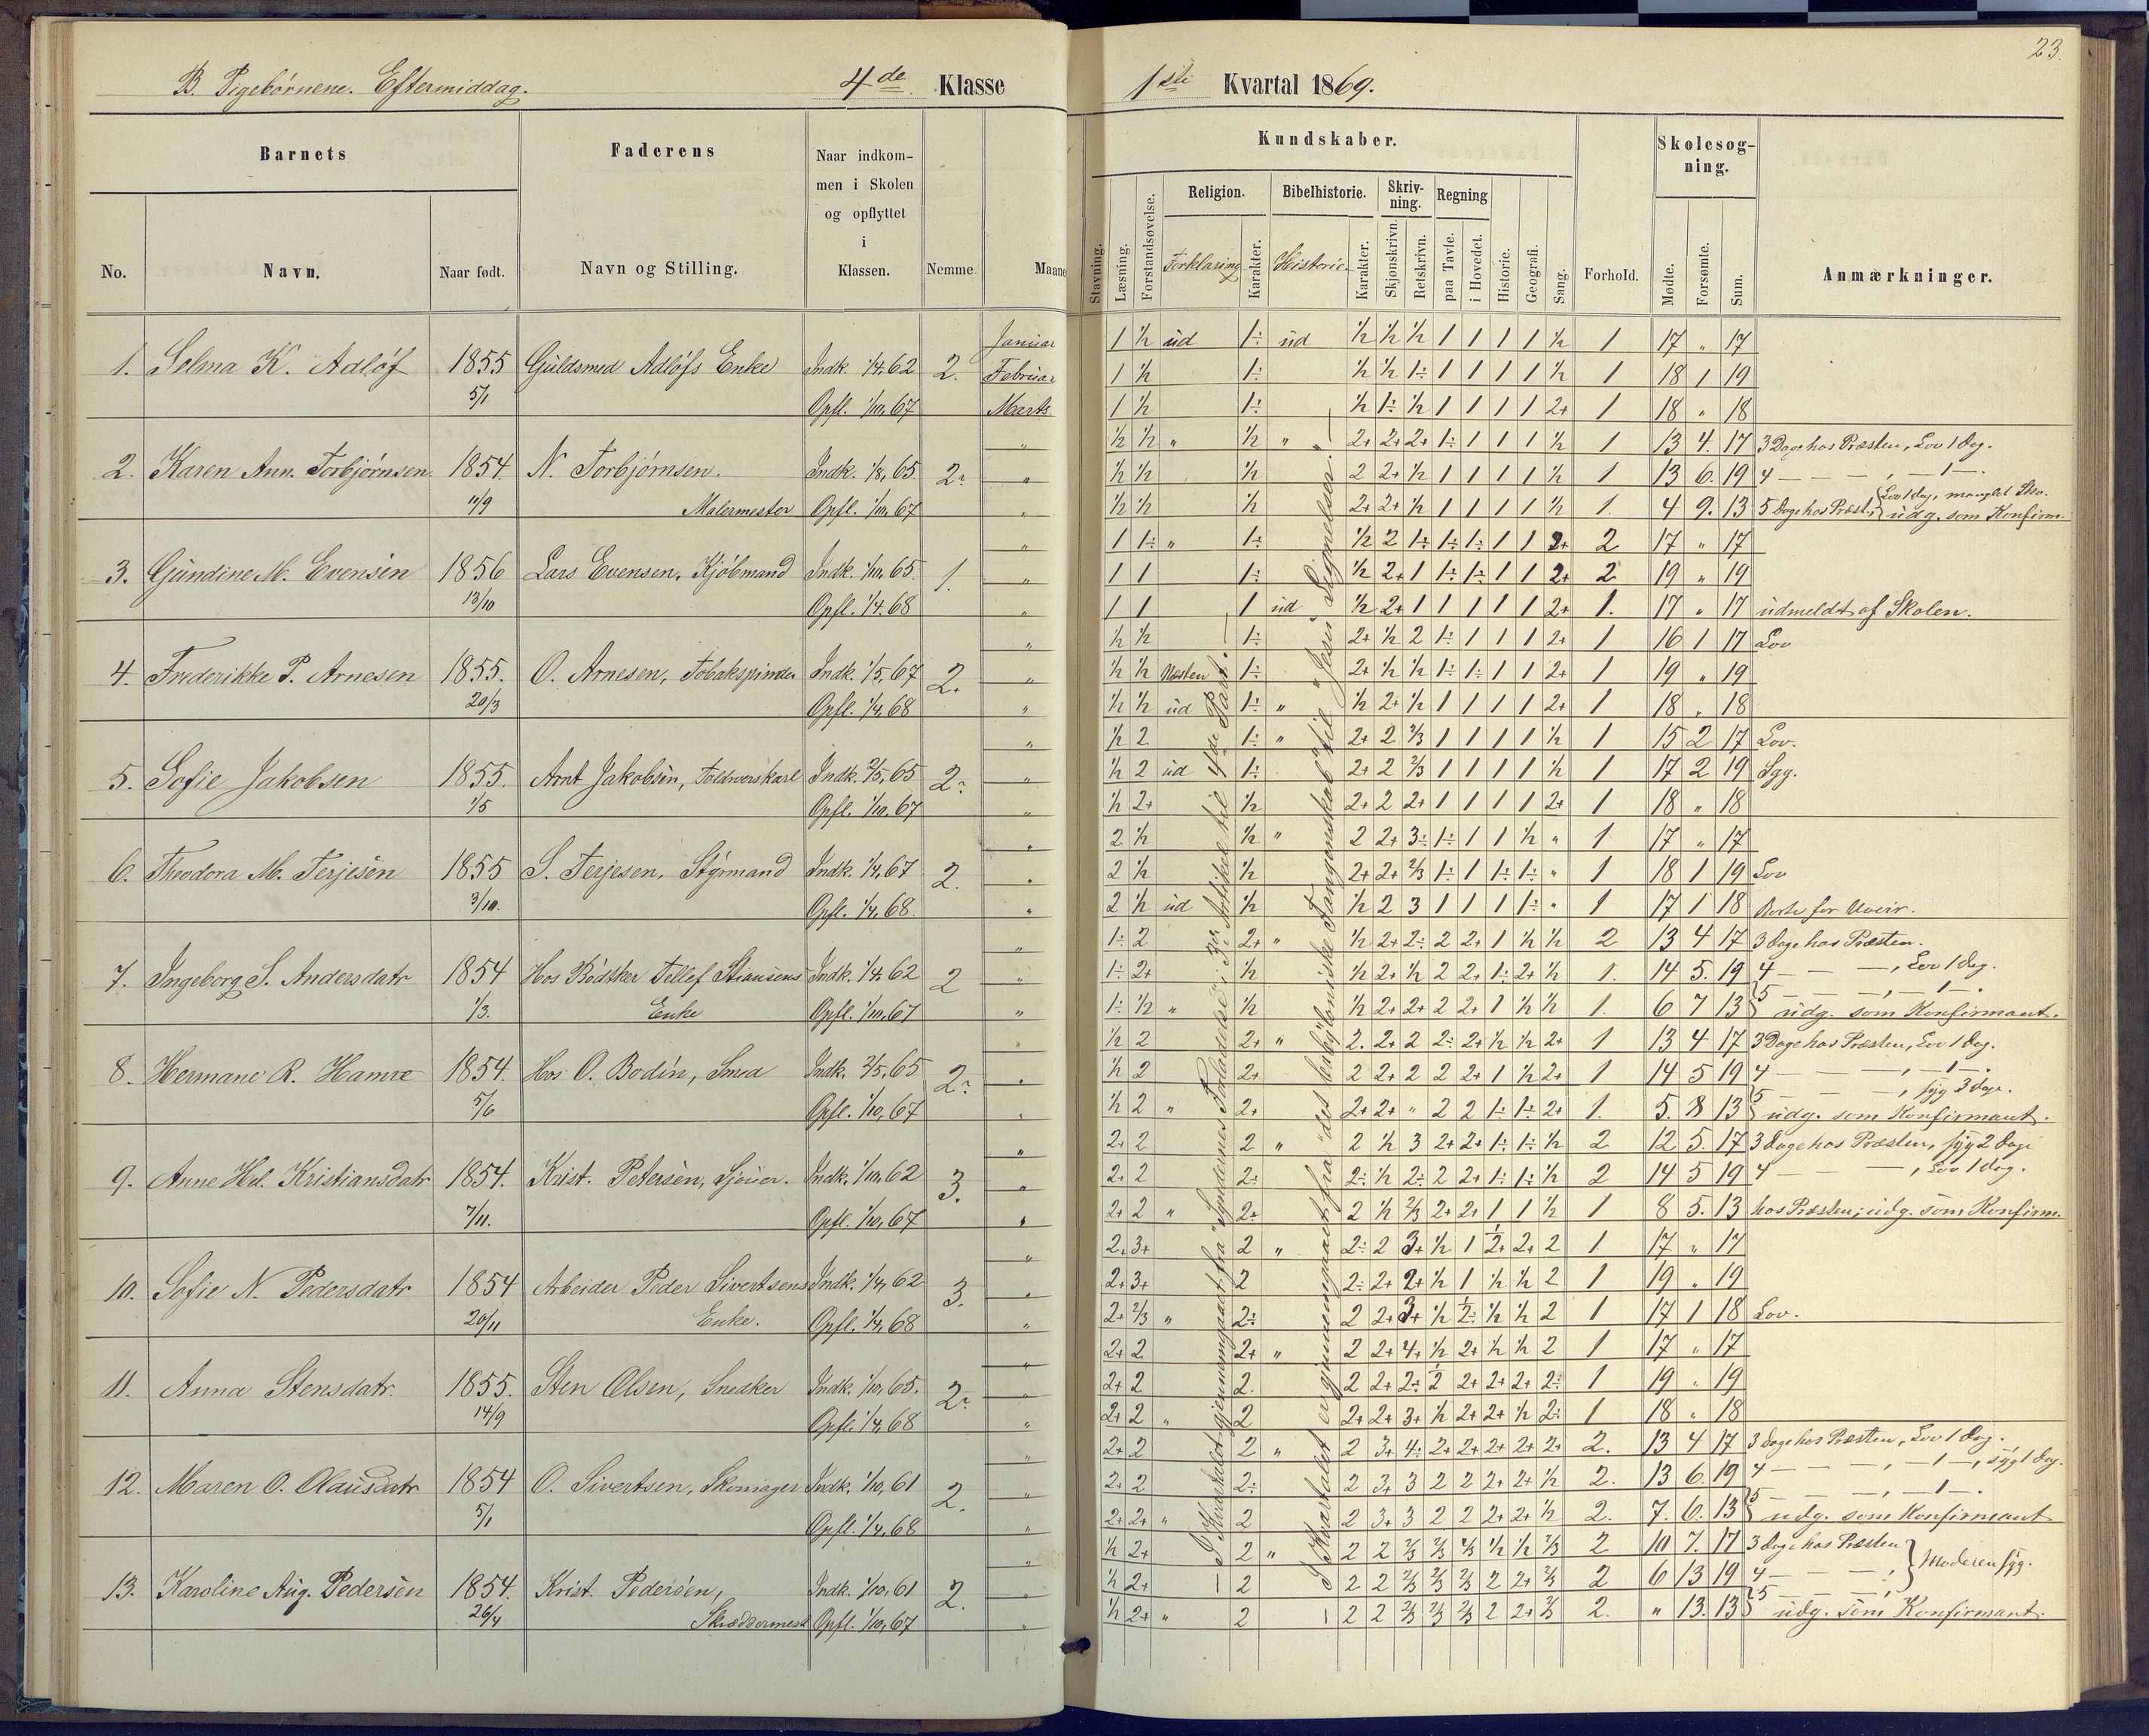 23.
B. Pigebørnene. Eftermiddag. 4de Klasse 1ste Kvartal 1869.
Barnets Faderens Naar indkommen i Skolen og opflyttet i Klassen. Nemme. Maane
No. Navn. Naar født. Navn og Stilling.
Kundskaber. Skolesøgning.
Religion. Bibelhistorie. Skrivning. Regning
Stavning. Læsning. Forstandsøvelse. Forklaring Karakter. Historie. Karakter. Skjønskrivn. Retskrivn. paa Tavle. i Hovedet. Historie. Geografi. Sang. Forhold. Mødte. Forsømte. Sum. Anmærkninger.
1. Selma K. Adløf 1855 5/1 Guldsmed Adløfs Enke Indk. 1/4, 62 Opfl. 1/10, 67 2.
Januar 1 1/2 ud 1÷ ud 1/2 1/2 1/2 1 1 1 1 1/2 1 17 " 17
Februar 1 1/2 1÷ 1/2 1/2 1÷ 1 1 1 1 1/2 1 18 1 19
Marts 1 1/2 1÷ 1/2 1÷ 1/2 1 1 1 1 2+ 1 18 " 18
2. Karen Ann. Torbjørnsen 1854. 11/9 N. Torbjørnsen. Malermester Indk. 1/8, 65 Opfl. 1/10, 67 2.
" 1/2 1/2 " 1/2 " 2+ 2+ 2+ 1÷ 1 1 1 1/2 1 13 4. 17 3 Dage hos Præsten, Lov 1 Dag.
" 1/2 1/2 1/2 2 2+ 1/2 1 1 1 1 1/2 1 13 6. 19 4 — — —, — 1 —.
" 1/2 1/2 1/2 2+ 2+ 1/2 1 1 1 1 1/2 1. 4 9. 13 5 Dage hos Præst., Lov 1 dag, manglet Sko. udg. som Konfirm.
3. Gundine M. Evensen 1856 13/10 Lars Evensen, Kjøbmand Indk. 1/10, 65. Opfl. 1/4, 68 1.
" 1 1÷ " 1÷ 1/2 2 1÷ 1÷ 1÷ 1 1 2+ 2 17 " 17
" 1 1 1÷ 1/2 2+ 1 1÷ 1÷ 1 1 2+ 2 19 " 19
" 1 1 1 ud 1/2 2+ 1 1 1 1 1 2+ 1. 17 " 17 udmeldt af Skolen.
4. Frederikke P. Arnesen 1855. 20/3 O. Arnesen, Tobakspinder Indk. 1/5, 67 Opfl. 1/4, 68 2.
" 1/2 1/2 1÷ 2+ 1/2 2 1÷ 1 1 1 2+ 1 16 1 17 Lov
" 1/2 1/2 Næsten 1÷ 2+ 1/2 1/2 1÷ 1÷ 1 1 2+ 1 19 " 19
" 1/2 1/2 ud 1÷ " 1/2 2+ 1/2 1 1 1 1 2+ 1 18 " 18
5. Sofie Jakobsen 1855. 1/5 Arnt Jakobsen, Toldverskarl Indk. 2/5, 65 Opfl. 1/10, 67 2.
" 1/2 2 1÷ " 2+ 2 2/3 1 1 1 1 1/2 1 15 2 17 Lov.
" 1/2 2 ud 1÷ 2+ 2 2/3 1 1 1 1 1/2 1 17 2 19 Syg.
" 1/2 2+ 1/2 2+ 2 2+ 1 1 1 1 2+ 1 18 " 18
6. Theodora M. Terjesen 1855 3/10. S. Terjesen, Styrmand Indk. 1/4, 67 Opfl. 1/4, 68. 2.
" 2 1/2 1/2 " 2 2+ 3÷ 1÷ 1 1 1/2 " 1. 17 " 17
" 2 1/2 1/2 2+ 2+ 2/3 1÷ 1 1÷ 1÷ " 1 18 1 19 Lov
" 2 1/2 ud 1/2 1/2 2 3 1 1 1 1÷ " 1 17 1 18 Borte for Uveir.
7. Ingeborg S. Andersdatr 1854 1/3. Hos Bødtker Tellef Stiansens Enke Indk. 1/4, 62 Opfl. 1/10, 67 2
" 1÷ 2 2+ " 1/2 2+ 2÷ 2 2+ 1 1/2 1/2 2 13 4 17 3 dage hos Præsten.
" 1÷ 2+ 1/2 1/2 2+ 1/2 2 2+ 1÷ 2+ 1/2 1. 14 5. 19 4 — — —, Lov 1 dag.
" 1÷ 1/2 " 1/2 1/2 2+ 2+ 2 2+ 1 1/2 1/2 1. 6 7 13 5 — — —, — 1 —. udg. som Konfirmant.
8. Hermane R. Hamre 1854. 5/6 Hos O. Bodin, Smed Indk. 2/5, 65 Opfl. 1/10, 67 2.
" 1/2 2 2+ " 2. 2+ 2 2÷ 2+ 1/2 1/2 2+ 1 13 4 17 3 Dage hos Præsten, Lov 1 Dag.
" 1/2 2 2+ 2 2+ 2 2 2+ 1 1/2 2+ 1 14 5 19 4 — — —, — 1 —.
" 1/2 2 " 2+ 2+ 2+ " 2 2 1÷ 1÷ 2+ 1. 5. 8 13 5 — — —, syg 3 dage. udg. som Konfirmant.
9. Anne Hel. Kristiansdatr 1854. 7/11. Krist. Petersen, Sjouer. Indk. 1/10, 62 Opfl. 1/10, 67 3.
" 2+ 2 2 " 2 1/2 3 2+ 2+ 1÷ 1÷ 1/2 2 12 5. 17 3 dage hos Præsten, syg 2 dage
" 2+ 2 2÷ 2÷ 1/2 2÷ 2 2+ 1÷ 1÷ 1/2 2 14 5 19 4 — — —, Lov 1 dag.
" 2+ 2 " 2÷ 2 1/2 2/3 2+ 2+ 1 1 1/2 1 8 5. 13 hos Præsten; udg. som Konfirm.
10. Sofie N. Pedersdatr 1854 20/11 Arbeider Peder Sivertsens Enke. Indk. 1/4, 62 Opfl. 1/4, 68 3.
" 2+ 3+ 2 " 2÷ 2 3+ 1/2 1 1/2+ 2+ 2 1 17 " 17
" 2+ 3+ 2 2÷ 2+ 2+ 1/2 1 1/2 1/2 2 1 19 " 19
" 2+ 2/3 " 2÷ 2 2+ 3+ 1/2 1/2 1/2 1/2 2 1 17 1 18 Lov.
11. Anna Stensdatr. 1855. 14/9 Sten Olsen, Snedker Indk. 1/10, 65. Opfl. 1/4, 68 2.
" 2+ 2 2+ " 2 2+ 4+ 1/2 2+ 1/2 1/2 2 1 17 " 17
" 2+ 2 2. 2 2+ 2÷ 1/2 2+ 2+ 2+ 2÷ 1 19 " 19
" 2+ 2 " 2 2+ 2+ 3+ 1/2 2+ 2+ 1/2 2÷ 1 18 " 18
12. Maren O. Olausdatr 1854 5/1 O. Sivertsen, Skomager Indk. 1/10, 61 Opfl. 1/4, 68 2.
" 2+ 2 2 " 2 3+ 4÷ 2+ 2+ 2+ 2+ 2+ 2. 13 4 17 3 dage hos Præsten, Lov 1 dag.
" 2+ 2 2÷ 2 3+ 3 2 2 2+ 2+ 1/2 2. 13 6. 19 4 — — —, — 1 —, syg 1 dag.
" 2+ 2+ " 2 2 3+ 3 2 2 2+ 2+ 1/2 2. 7. 6. 13 5 — — —, — 1 —. udg. som Konfirmant
13. Karoline Aug. Pedersen 1854. 26/4 Krist. Pedersen, Skræddermest Indk. 1/10, 61 Opfl. 1/10, 67 2.
" 1/2 2+ 2 " 2 2 2/3 2/3 2/3 1/2 1/2 2/3 2 10 7. 17 3 dage hos Præsten
" 1/2 2+ 2 2 2 2/3 2/3 2/3 2 2+ 2/3 2 6 13 19 4 — — —, Moderen syg.
" 1/2 2+ " 2 2 2 2/3 2/3 2/3 2 2+ 2/3 2. " 13. 13 5 — — —, udg. som Konfirmant.
— I Kvartalet gjennemgaaet fra "Syndernes Forladelse" i 3die Artikel til 4de Part. —
I Kvartalet er gjennemgaaet fra "det babyloniske Fangenskab" til "Jesu Lignelser". —